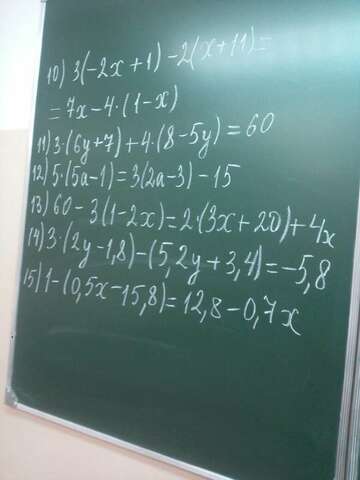 10) 3(-2x+1) -2(x+11)=
=7x-4·(1-x)
11) 3·(6y+7)+4·(8-5y)=60
12) 5·(5a-1)=3(2a-3)-15
13) 60-3(1-2x)=2·(3x+20)+4x
14) 3·(2y-1,8)-(5,2y+3,4)=-5,8
15) 1-(0,5x-15,8)=12,8-0,7x